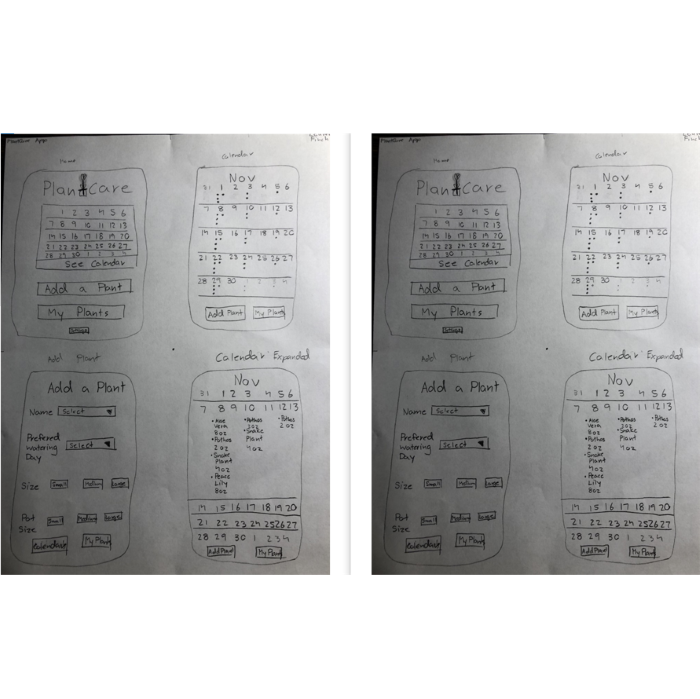 PlantCare App
Home
Plant Care
1 2 3 4 5 6
7 8 9 10 11 12 13
14 15 16 17 18 19 20
21 22 23 24 25 26 27
28 29 30 1 2 3 4
See Calendar
Add a Plant
My Plants
Calendar
Nov
31 1 2 3 4 5 6
7 8 9 10 11 12 13
14 15 16 17 18 19 20
21 22 23 24 25 26 27
28 29 30
Add Plant My Plants
Add Plant
Add a Plant
Name Select
Preferred
watering Select
Day
Size Small Medium Large
Pot Small Medium Large
Size
Calendar My Plant
Calendar Expanded
Nov
31 1 2 3 4 5 6
7 8 9 10 11 12 13
• Aloe
Vera
8oz
• Pothos
2oz
• Snake
Plant
4oz
• Peace
Lily
8oz
• Pothos
2oz
• Snake
Plant
4oz
• Pothos
2oz
14 15 16 17 18 19 20
21 22 23 24 25 26 27
28 29 30 1 2 3 4
Add Plant My Plant
PlantCare App
Home
Plant Care
1 2 3 4 5 6
7 8 9 10 11 12 13
14 15 16 17 18 19 20
21 22 23 24 25 26 27
28 29 30 1 2 3 4
See Calendar
Add a Plant
My Plants
Calendar
Nov
31 1 2 3 4 5 6
7 8 9 10 11 12 13
14 15 16 17 18 19 20
21 22 23 24 25 26 27
28 29 30
Add Plant My Plants
Add Plant
Add a Plant
Name Select
Preferred
watering Select
Day
Size Small Medium Large
Pot Small Medium Large
Size
Calendar My Plant
Calendar Expanded
Nov
31 1 2 3 4 5 6
7 8 9 10 11 12 13
• Aloe
Vera
8oz
• Pothos
2oz
• Snake
Plant
4oz
• Peace
Lily
8oz
• Pothos
2oz
• Snake
Plant
4oz
• Pothos
2oz
14 15 16 17 18 19 20
21 22 23 24 25 26 27
28 29 30 1 2 3 4
Add Plant My Plant